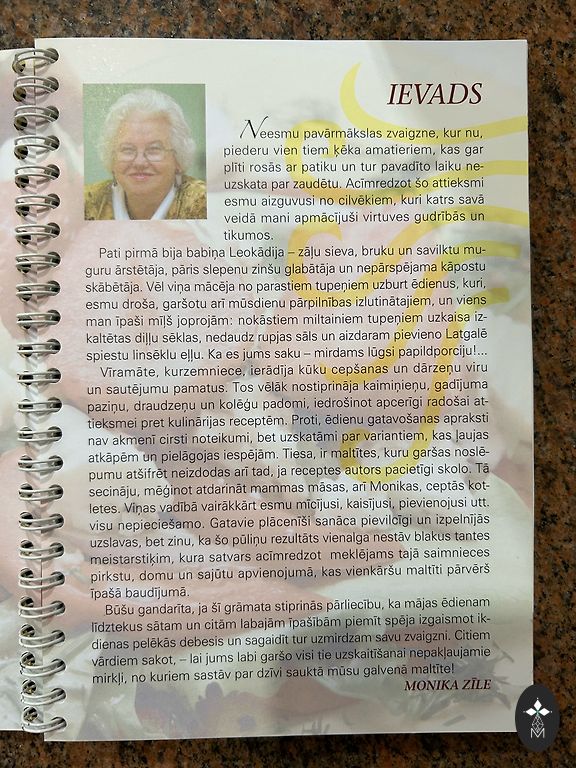 IEVADS
Neesmu pavārmākslas zvaigzne, kur nu,
piederu vien tiem ķēķa amatieriem, kas gar
plīti rosās ar patiku un tur pavadīto laiku ne-
uzskata par zaudētu. Acīmredzot šo attieksmi
esmu aizguvusi no cilvēkiem, kuri katrs savā
veidā mani apmācījuši virtuves gudrībās un
tikumos.
Pati pirmā bija babiņa Leokādija – zāļu sieva, bruku un savilktu mu-
guru ārstētāja, pāris slepenu zinšu glabātāja un nepārspējama kāpostu
skābētāja. Vēl viņa mācēja no parastiem tupeņiem uzburt ēdienus, kuri,
esmu droša, garšotu arī mūsdienu pārpilnības izlutinātajiem, un viens
man īpaši mīļš joprojām: nokāstiem miltainiem tupeņiem uzkaisa iz-
kaltētas diļļu sēklas, nedaudz rupjas sāls un aizdaram pievieno Latgalē
spiestu linsēklu eļļu. Ka es jums saku – mirdams lūgsi papildporciju!...
Vīramāte, kurzemniece, ierādīja kūku cepšanas un dārzeņu viru
un sautējumu pamatus. Tos vēlāk nostiprināja kaimiņieņu, gadījuma
paziņu, draudzeņu un kolēģu padomi, iedrošinot apcerīgi radošai at-
tieksmei pret kulinārijas receptēm. Proti, ēdienu gatavošanas apraksti
nav akmenī cirsti noteikumi, bet uzskatāmi par variantiem, kas ļaujas
atkāpēm un pielāgojas iespējām. Tiesa, ir maltītes, kuru garšas noslē-
pumu atšifrēt neizdodas arī tad, ja receptes autors pacietīgi skolo. Tā
secināju, mēģinot atdarināt mammas māsas, arī Monikas, ceptās kot-
letes. Viņas vadībā vairākkārt esmu mīcījusi, kaisījusi, pievienojusi utt.
visu nepieciešamo. Gatavie plācenīši sanāca pievilcīgi un izpelnījās
uzslavas, bet zinu, ka šo pūliņu rezultāts vienalga nestāv blakus tantes
meistarstiķim, kura satvars acīmredzot meklējams tajā saimnieces
pirkstu, domu un sajūtu apvienojumā, kas vienkāršu maltīti pārvērš
īpašā baudījumā.
Būšu gandarīta, ja šī grāmata stiprinās pārliecību, ka mājas ēdienam
līdztekus sātam un citām labajām īpašībām piemīt spēja izgaismot ik-
dienas pelēkās debesis un sagaidīt tur uzmirdzam savu zvaigzni. Citiem
vārdiem sakot, – lai jums labi garšo visi tie uzskaitīšanai nepakļaujamie
mirkļi, no kuriem sastāv par dzīvi sauktā mūsu galvenā maltīte!
MONIKA ZĪLE
M